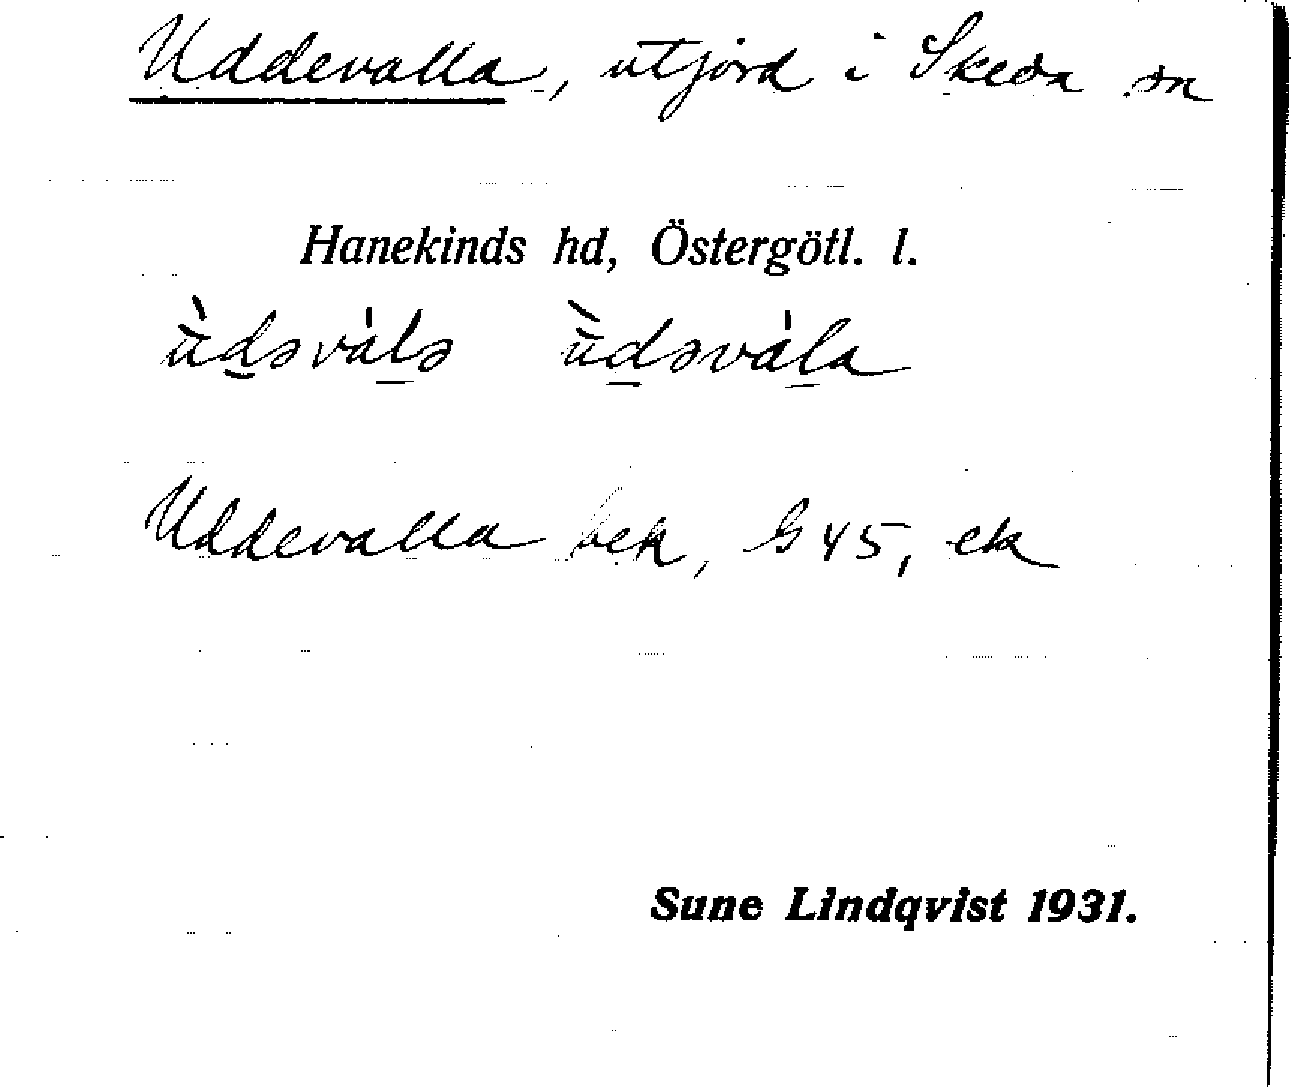 Uddevalla, utjord i Skeda sn
Hanekinds hd, Östergötl. l.
ùd̲əvàl̲ə ùd̲əvàl̲a
Uddevalla bek, G 45, ek
Sune Lindqvist 1931.